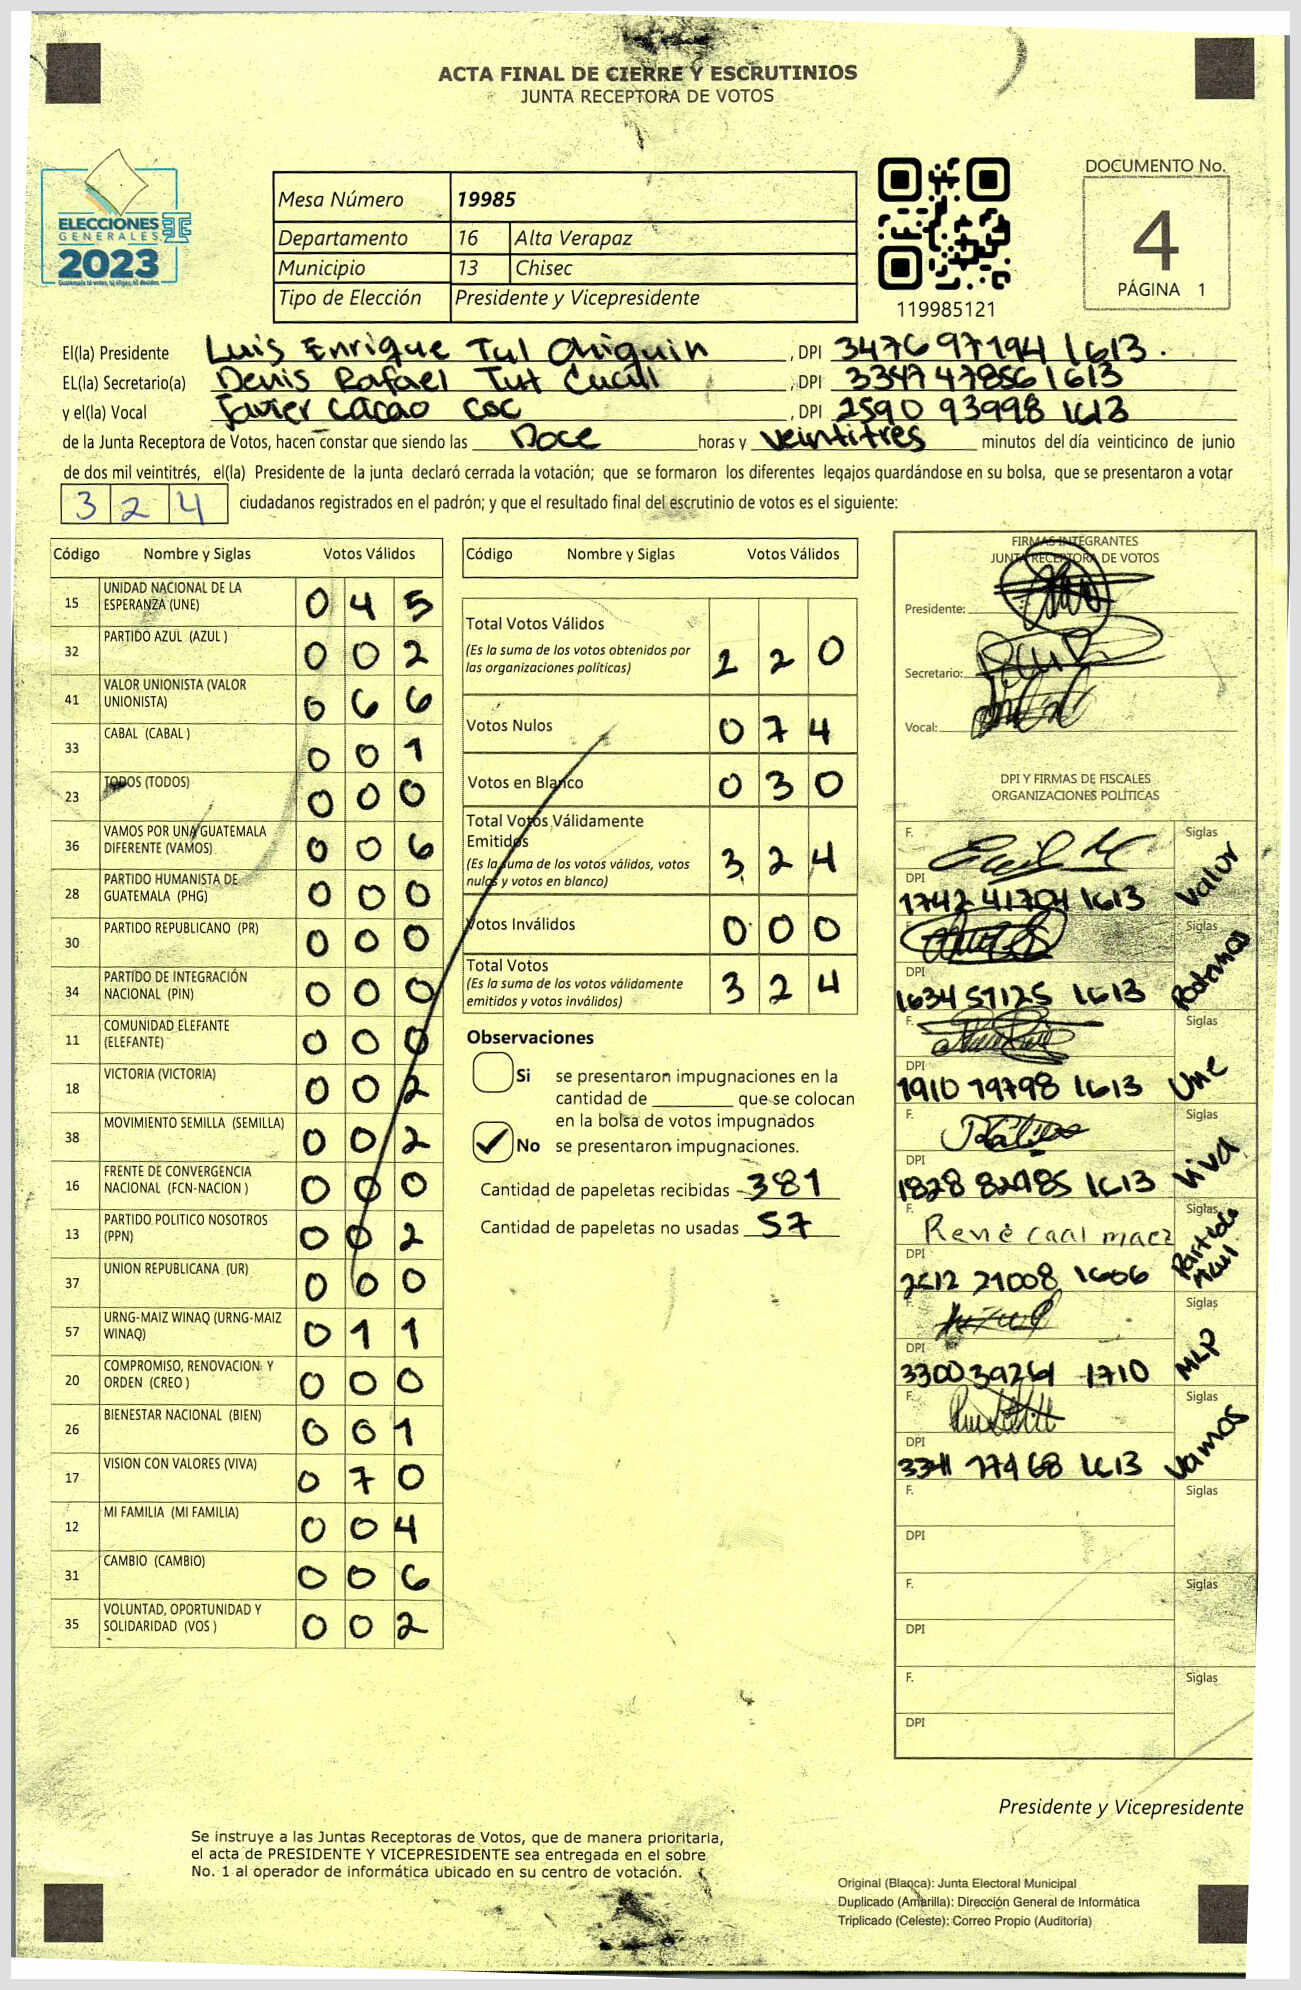 ACTA FINAL DE CIERRE Y ESCRUTINIOS
JUNTA RECEPTORA DE VOTOS
ELECCIONES
GENERALES
2023
Mesa Número 19985
Departamento 16 Alta Verapaz
Municipio 13 Chisec
Tipo de Elección Presidente y Vicepresidente
119985121
DOCUMENTO No.
4
PÁGINA 1
El(la) Presidente Luis Enrique Tul Chiquin , DPI 3476 97194 1613.
EL(la) Secretario(a) Denis Rafael Tut Cucul , DPI 3347 47856 1613
y el(la) Vocal Javier Cacao Coc , DPI 2590 93998 1613
de la Junta Receptora de Votos, hacen constar que siendo las Doce horas y veintitres minutos del día veinticinco de junio
de dos mil veintitrés, el(la) Presidente de la junta declaró cerrada la votación; que se formaron los diferentes legajos quardándose en su bolsa, que se presentaron a votar
3 2 4 ciudadanos registrados en el padrón; y que el resultado final del escrutinio de votos es el siguiente:
Código Nombre y Siglas Votos Válidos
15 UNIDAD NACIONAL DE LA ESPERANZA (UNE) 0 4 5
32 PARTIDO AZUL (AZUL ) 0 0 2
41 VALOR UNIONISTA (VALOR UNIONISTA) 0 6 6
33 CABAL (CABAL ) 0 0 1
23 TODOS (TODOS) 0 0 0
36 VAMOS POR UNA GUATEMALA DIFERENTE (VAMOS) 0 0 6
28 PARTIDO HUMANISTA DE GUATEMALA (PHG) 0 0 0
30 PARTIDO REPUBLICANO (PR) 0 0 0
34 PARTIDO DE INTEGRACIÓN NACIONAL (PIN) 0 0 0
11 COMUNIDAD ELEFANTE (ELEFANTE) 0 0 0
18 VICTORIA (VICTORIA) 0 0 2
38 MOVIMIENTO SEMILLA (SEMILLA) 0 0 2
16 FRENTE DE CONVERGENCIA NACIONAL (FCN-NACION ) 0 0 0
13 PARTIDO POLITICO NOSOTROS (PPN) 0 0 2
37 UNION REPUBLICANA (UR) 0 0 0
57 URNG-MAIZ WINAQ (URNG-MAIZ WINAQ) 0 1 1
20 COMPROMISO, RENOVACION Y ORDEN (CREO ) 0 0 0
26 BIENESTAR NACIONAL (BIEN) 0 0 1
17 VISION CON VALORES (VIVA) 0 7 0
12 MI FAMILIA (MI FAMILIA) 0 0 4
31 CAMBIO (CAMBIO) 0 0 6
35 VOLUNTAD, OPORTUNIDAD Y SOLIDARIDAD (VOS ) 0 0 2
Código Nombre y Siglas Votos Válidos
Total Votos Válidos 2 2 0
(Es la suma de los votos obtenidos por
las organizaciones políticas)
Votos Nulos 0 7 4
Votos en Blanco 0 3 0
Total Votos Válidamente
Emitidos 3 2 4
(Es la suma de los votos válidos, votos
nulos y votos en blanco)
Votos Inválidos 0 0 0
Total Votos 3 2 4
(Es la suma de los votos válidamente
emitidos y votos inválidos)
Observaciones
Si se presentaron impugnaciones en la
cantidad de que se colocan
en la bolsa de votos impugnados
No se presentaron impugnaciones.
Cantidad de papeletas recibidas 381
Cantidad de papeletas no usadas 57
FIRMAS INTEGRANTES
JUNTA RECEPTORA DE VOTOS
Presidente:
Secretario:
Vocal:
DPI Y FIRMAS DE FISCALES
ORGANIZACIONES POLÍTICAS
F. Siglas Valor
DPI
1742 41704 1613
F. Siglas Podemos
DPI
1634 57125 1613
F. Siglas Une
DPI
1910 79798 1613
F. Siglas Viva
DPI
1828 82985 1613
F. René caal macz Siglas Partido
DPI
2612 21008 1606
F. Siglas MLP
DPI
3300 39261 1710
F. Siglas Vamos
DPI
3341 77468 1613
F. Siglas
DPI
F. Siglas
DPI
F. Siglas
DPI
Presidente y Vicepresidente
Se instruye a las Juntas Receptoras de Votos, que de manera prioritaria,
el acta de PRESIDENTE Y VICEPRESIDENTE sea entregada en el sobre
No. 1 al operador de informática ubicado en su centro de votación.
Original (Blanca): Junta Electoral Municipal
Duplicado (Amarilla): Dirección General de Informática
Triplicado (Celeste): Correo Propio (Auditoría)